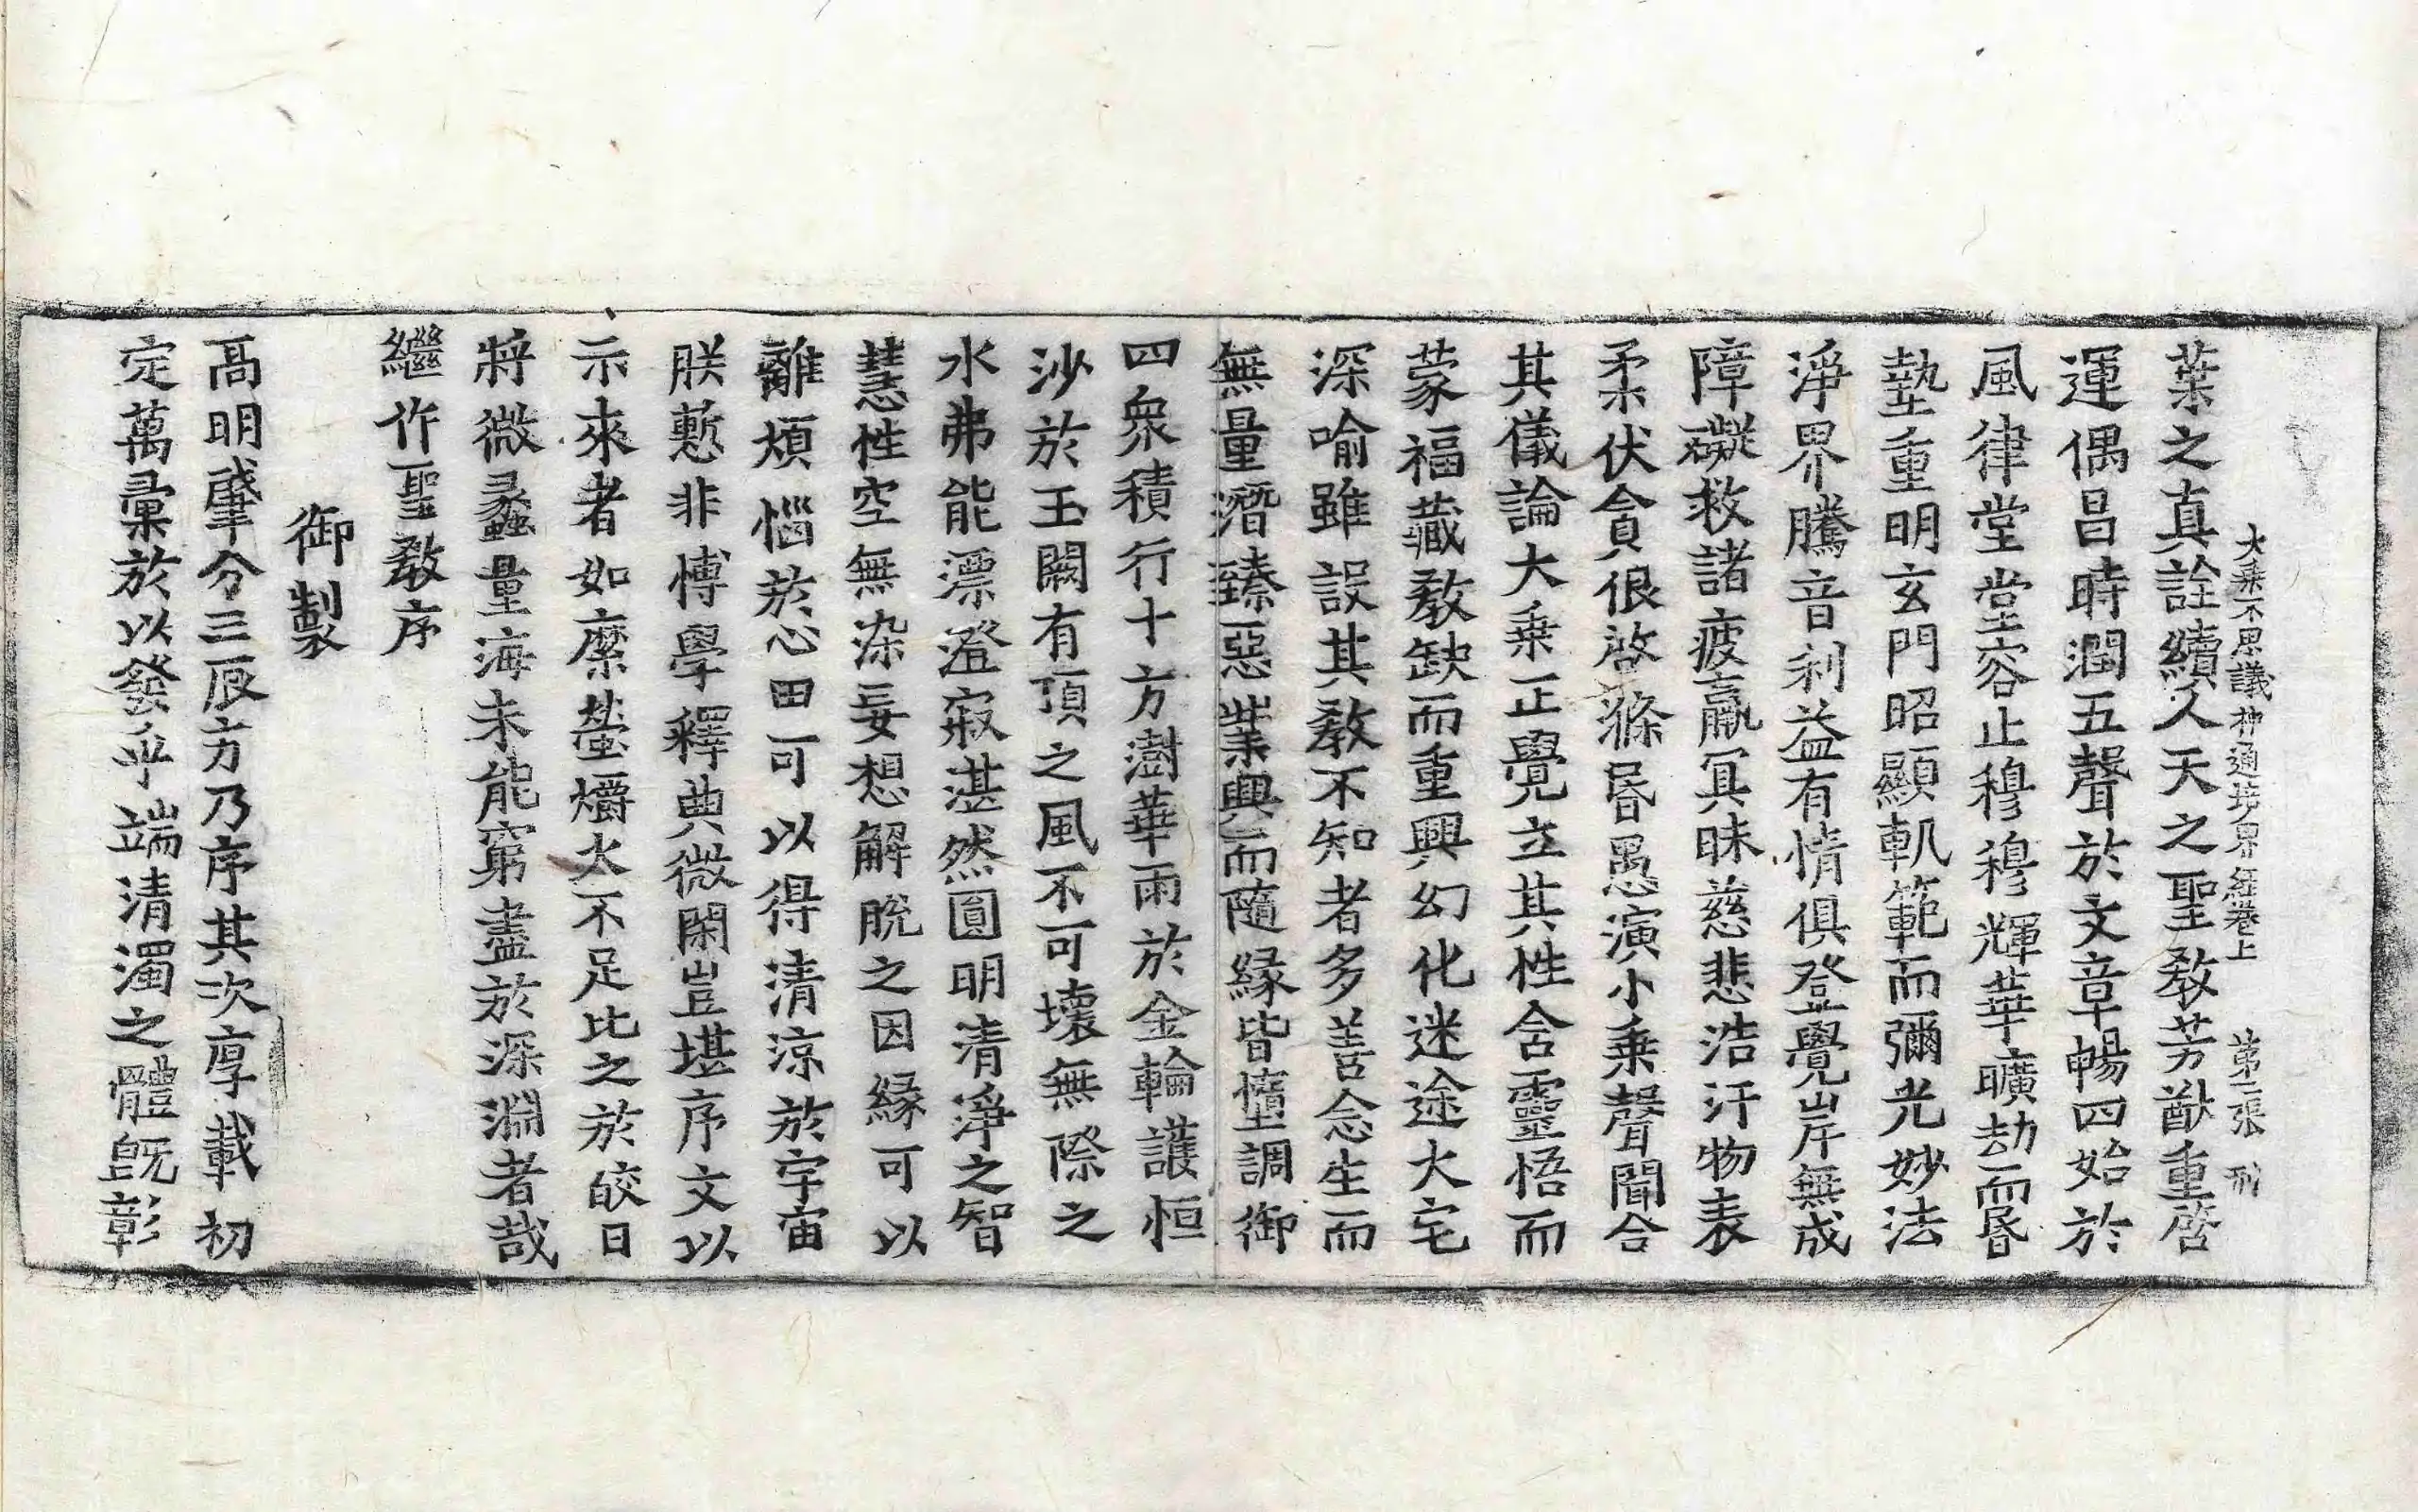 大乘不思議神通境界經卷上 第二張 刑
葉之真詮續人天之聖教芳猷重啓
運偶昌時潤五聲於文章暢四始於
風律堂堂容止穆穆輝華曠劫而昏
蟄重明玄門昭顯軌範而彌光妙法
淨界騰音利益有情俱登覺岸無成
障礙救諸疲羸冥昧慈悲浩汗物表
柔伏貪佷啓滌昏愚演小乘聲聞合
其儀論大乘正覺立其性含靈悟而
蒙福藏教缺而重興幻化迷途大宅
深喻雖設其教不知者多善念生而
無量潛臻惡業興而隨緣皆墮調御
四衆積行十方澍華雨於金輪護恒
沙於玉闕有頂之風不可壞無際之
水弗能漂澄寂湛然圓明清淨之智
慧性空無染妄想解脫之因緣可以
離煩惱於心田可以得清涼於宇宙
朕慙非博學釋典微閑豈堪序文以
示來者如縻螢爝火不足比之於皎日
將微蠡量海未能窮盡於深淵者哉
繼作聖教序
御製
高明肇分三辰方乃序其次厚載初
定萬彙於以發乎端清濁之體旣彰